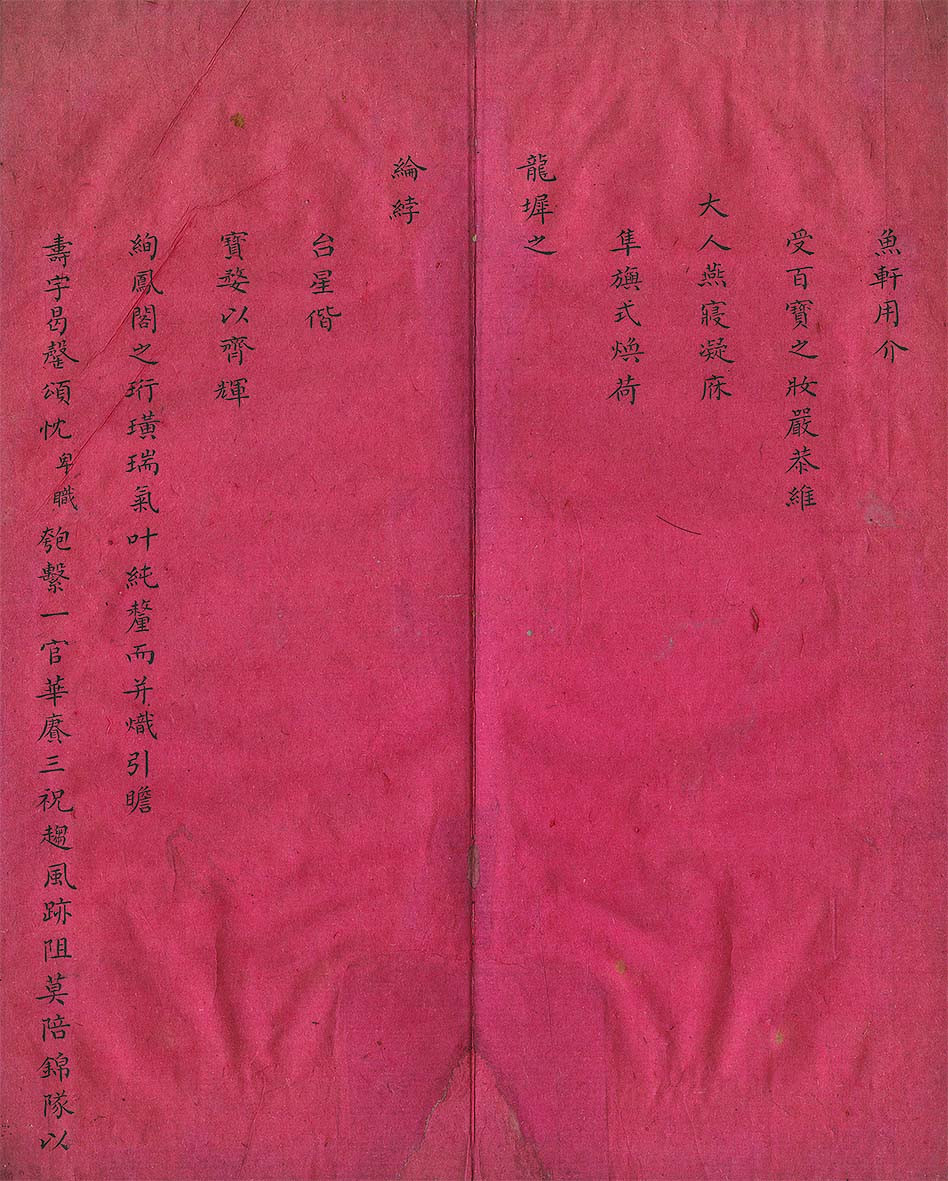 魚軒用介
受百寶之妝嚴恭維
大人燕寢凝庥
隼旟式煥荷
龍墀之
綸綍
台星偕
寶婺以齊輝
絢鳳閣之珩璜瑞氣叶純釐而并熾引瞻
壽宇曷罄頌忱卑職匏繫一官華賡三祝趨風跡阻莫陪錦隊以